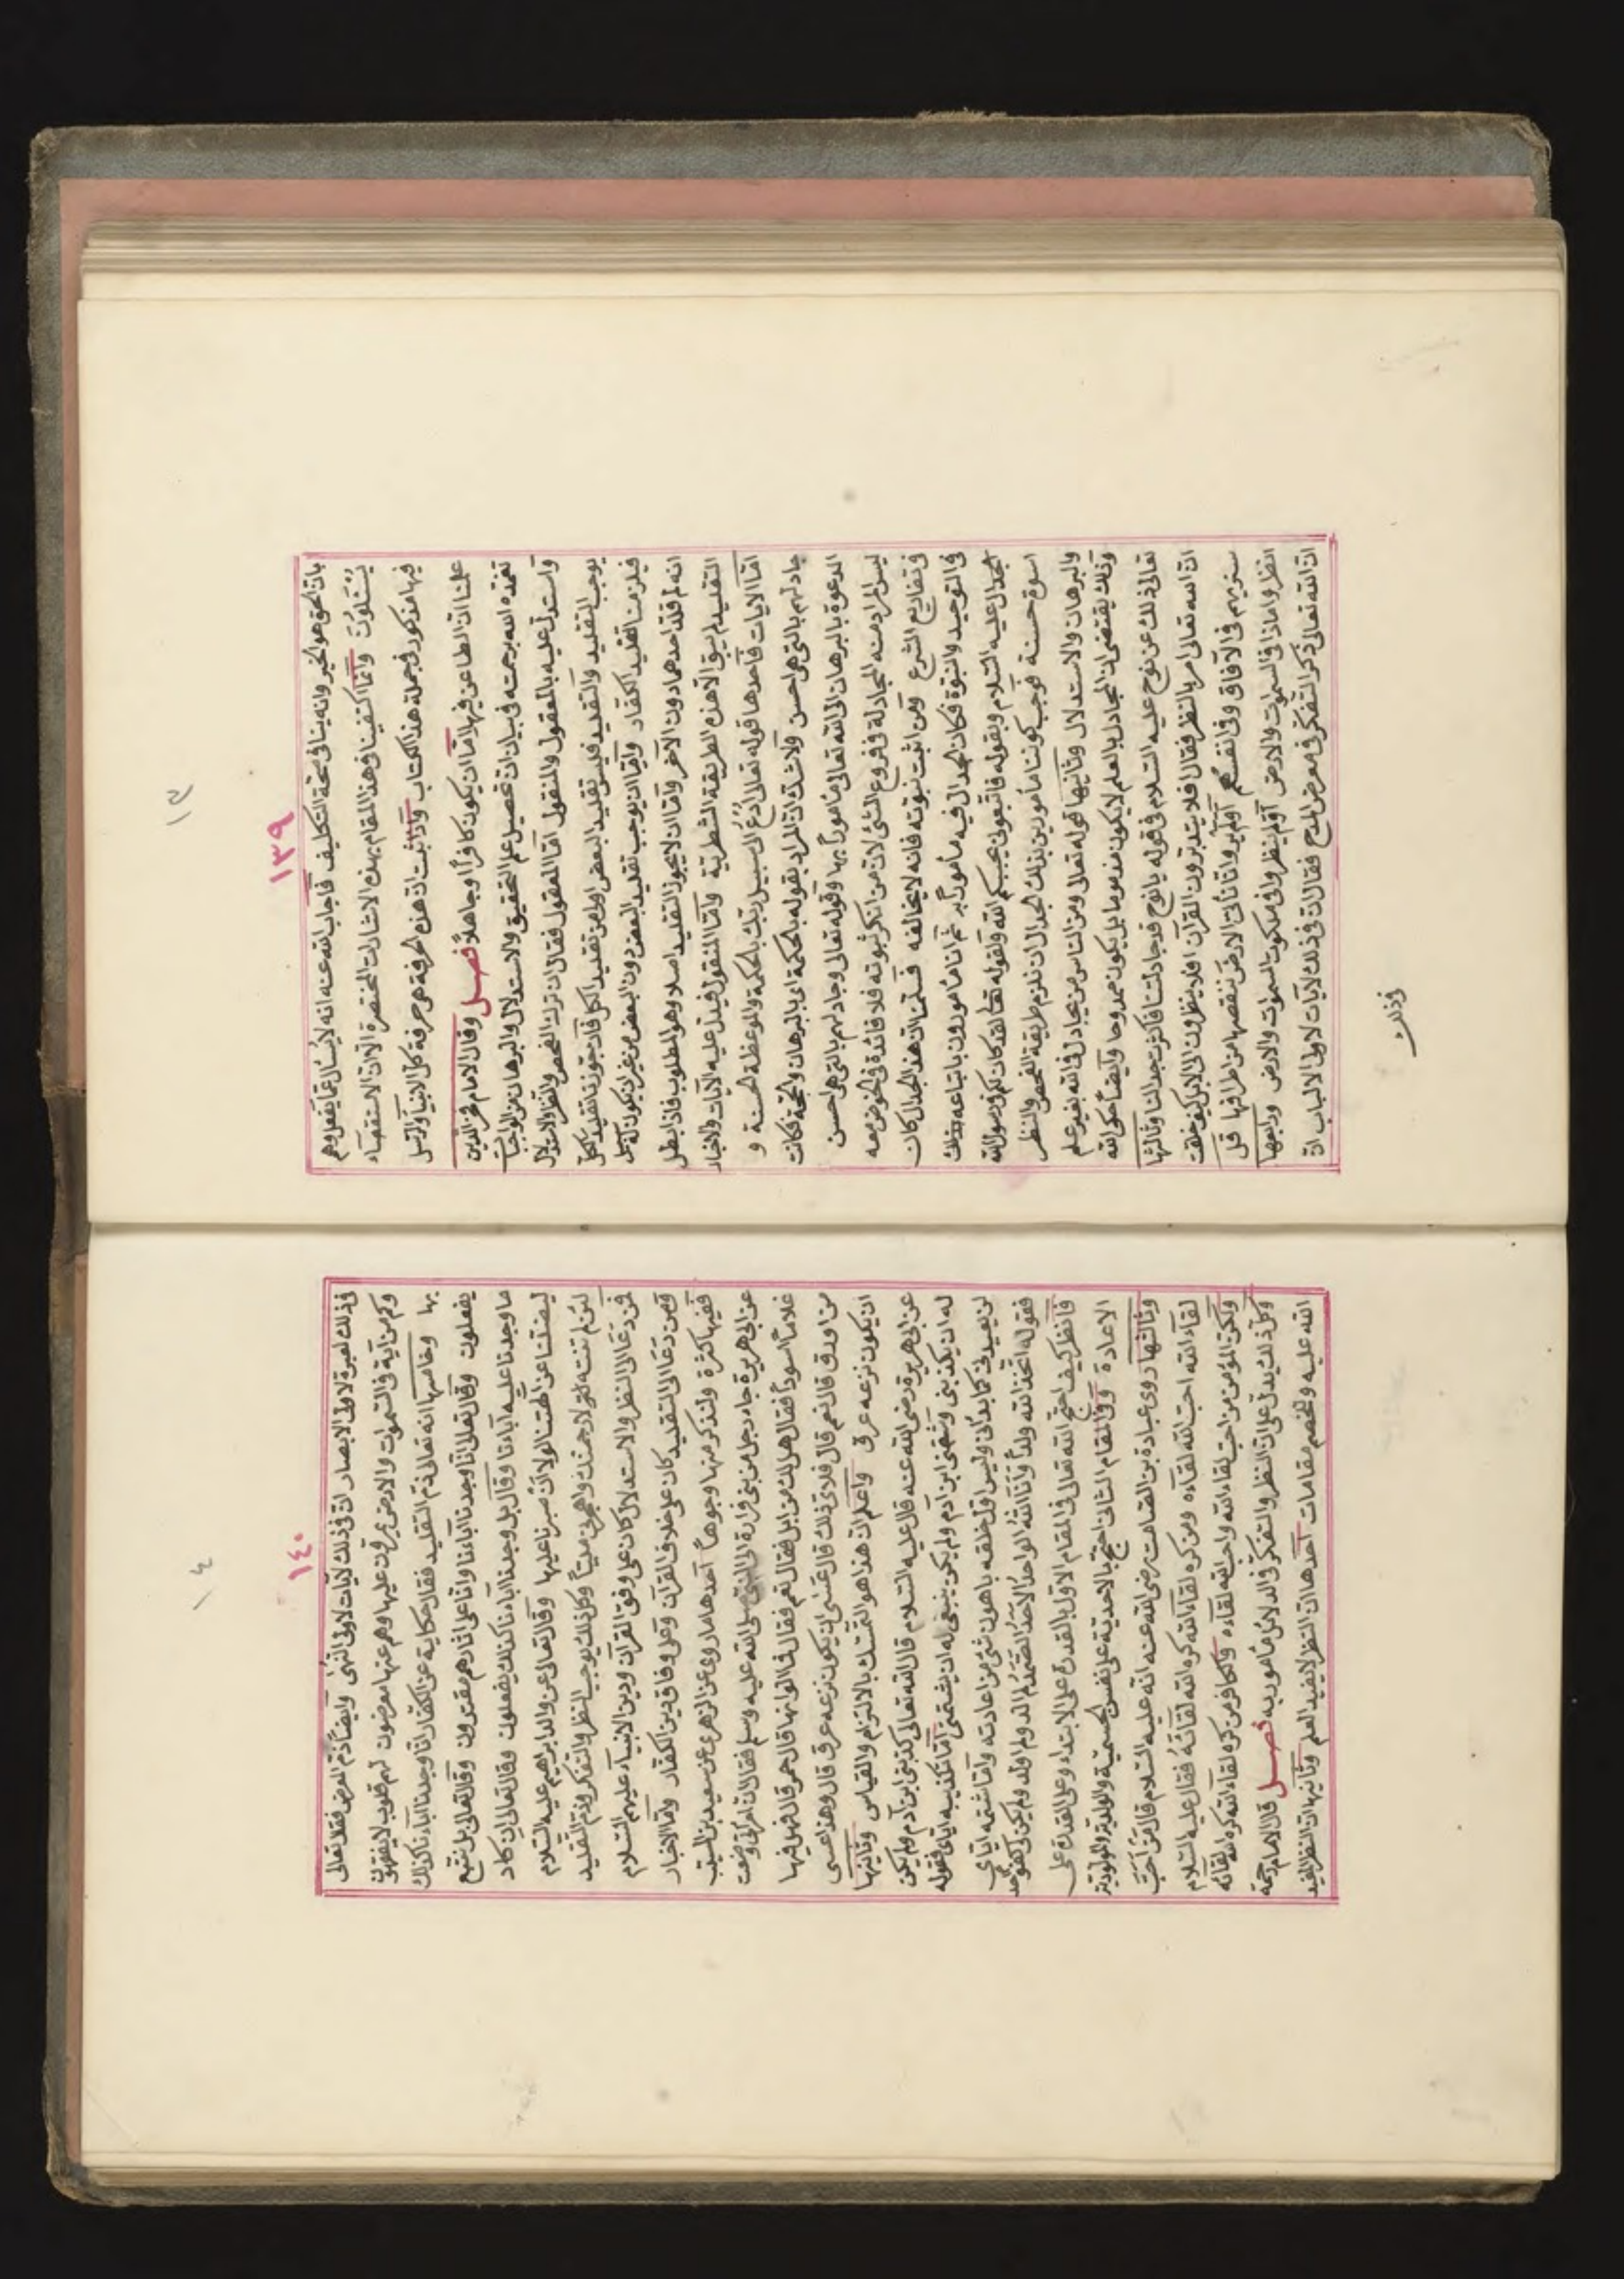 ١٣٩
١٣
بان الحق هو الخير وانه ينافى صحة التكليف فاجاب الله عنه انه لا يُسأل عمّا يفعل وهم
يُسْئَلُونَ وانّما اكتفينا فى هذا المقام بهذه الاشارات المختصرة لانّ الاستقصاء
فيها مذكور فى جملة هذا الكتاب واذا ثبت انّ هذه الحرفة هى حرفة كلّ الانبيآء والرّسل
علمنا انّ الطاعن فيها امّا ان يكون كافراً او جاهلاً فصل وقال الامام فخر الدّين
تغمّده الله برحمته فى بيان ان تحصيل علم التحقيق والاستدلال والبرهان من الواجبات
واستدلّ عليه بالمعقول والمنقول امّا المعقول فقال ان ترك الفحص والنظر والاستدلال
يوجب التقليد والتقليد فليس تقليد البعض اولى من تقليد الكل فان جوّزنا تقليد الكل
فيلزمنا تقليد الكفار وامّا ان يوجب تقليد البعض دون البعض من غير ان يكون له
انه لم قلّد احدهما دون الآخر وامّا ان لا يجوز التقليد اصلا وهو المطلوب فاذا بطل
التقليد لم يبق الّا هذه الطريقة النظرية وامّا المنقول فيدلّ عليه الآيات والاخبار
امّا الآيات فاحدها قوله تعالى اُدْعُ الى سبيل ربّك بالحكمة والموعظة الحسنة و
جادلهم بالتى هى احسن ولا شكّ انّ المراد بقوله بالحكمة اى بالبرهان والحجّة فكانت
الدعوة بالبرهان الى الله تعالى مأموراً بها وقوله تعالى وجادلهم بالتى هى احسن
ليس المراد منه المجادلة فى فروع الشّئ لانّ من انكر نبوّته فلا فائدة فى الخوض معه
فى تفاريع الشرع ومن اثبت نبوّته فانّه لا يخالفه فعلمنا انّ هذا الجدال كان
فى التوحيد والنبوّة فكان الجدال فيه مأموراً به ثم انّا مأمورون باتباعه بذلك
الجدال عليه السّلام وبقوله فاتّبعونى يحببكم الله ولقوله تعالى لقد كان لكم فى رسول الله
اسوة حسنة فوجب كوننا مأمورين بذلك الجدال ان نلزم طريقة الفحص والنظر
والبرهان والاستدلال وثانيها قوله تعالى ومن النّاس من يجادل فى الله بغير علم
وذلك يقتضى ان المجادل بالعلم لا يكون مذموما بل يكون ممدوحا وايضاً حكى الله
تعالى ذلك عن نوح عليه السّلام فى قوله يا نوح قد جادلتنا فاكثرت جدالنا وثالثها
انّ الله تعالى امر بالنظر فقال افلا يتدبّرون القرآن افلا ينظرون الى الابل كيف خلقت
سنريهم آياتنا فى الآفاق وفى انفسهم اولم يروا انّا نأتى الارض ننقصها من اطرافها قل
انظروا ماذا فى السّموات والارض اولم ينظروا فى ملكوت السّموات والارض ورابعها
انّ الله تعالى ذكر التفكّر فى معرض المدح فقال انّ فى ذلك لآيات لاولى الالباب انّ
فى ذلك
١٤٠
١٤
فى ذلك لعبرة لاولى الابصار انّ فى ذلك لآيات لاولى النّهى وايضاً ذمّ المعرض فقال تعالى
وكم من آية فى السّموات والارض يمرّون عليها وهم عنها معرضون لهم قلوب لا يفقهون
بها وخامسها انّه تعالى ذمّ التقليد فقال حكاية عن الكفّار انّا وجدنا آباءنا كذلك
يفعلون وقال تعالى انّا وجدنا آباءنا وانّا على آثارهم مقتدون وقال تعالى بل نتّبع
ما وجدنا عليه آباءنا وقال بل وجدنا آباءنا كذلك يفعلون وقال تعالى ان كاد
ليضلّنا عن الهتنا لولا ان صبرنا عليها وقال تعالى عن والد ابراهيم عليه السّلام
لئن لم تنته لارجمنّك واهجرنى مليّاً وكل ذلك يوجب النظر والتفكر وذم التقليد
فمن دعا الى النظر والاستدلال كان على وفق القرآن ودين الانبيآء عليهم السّلام
ومن دعا الى التقليد كان على خلاف القرآن وعلى وفاق دين الكفّار وامّا الاخبار
ففيها كثرة ولنذكر منها وجوهاً احدها ما روى عن الزهرى عن سعيد بن المسيّب
عن ابى هريرة جاء رجل من بنى فزارة الى النبى صلى الله عليه وسلم فقال انّ امرأتى وضعت
غلاماً اسود فقال هل لك من ابل فقال نعم فقال فما الوانها قال حمر قال فهل فيها
من اورق قال نعم قال فلأىّ ذلك قال عسى ان يكون نزعه عرق قال وهذا عسى
ان يكون نزعه عرق واعلم ان هذا هو التمسّك بالالتزام والقياس وثانيها
عن ابى هريرة رضى الله عنه قال عليه السّلام قال الله تعالى كذّبنى ابن آدم ولم يكن
له ان يكذّبنى وشتمنى ابن آدم ولم يكن ينبغى له ان يشتمنى امّا تكذيبه ايّاى فقوله
لن يعيدنى كما بدأنى وليس اوّل خلقه باهون شئ من اعادته وامّا شتمه ايّاى
فقوله اتّخذ الله ولداً وانا الله الواحد الاحد الصّمد لم الد ولم اولد ولم يكن لى كفوا احد
فانظر كيف احتجّ الله تعالى فى المقام الاوّل بالقدرة على الابتداء وعلى القدرة على
الاعادة وفى المقام الثانى احتجّ بالاحديّة على نفى الجسميّة والولديّة والمولوديّة
وثالثها روى عبادة بن الصّامت رضى الله عنه انه عليه السّلام قال من احبّ
لقاء الله احبّ الله لقاءه ومن كره لقاء الله كره الله لقائه فقال عليه السّلام
ولكن المؤمن من احبّ لقاء الله واحبّ الله لقاءه والكافر من كره لقاء الله كره الله لقائه
وكلّ ذلك يدلّ على انّ النظر والتفكّر فى الدلائل مأمور به فصل قال الامام رحمة
الله عليه وللخصم مقامات احدها انّ النظر لا يفيد العلم وثانيها انّ النظر المفيد